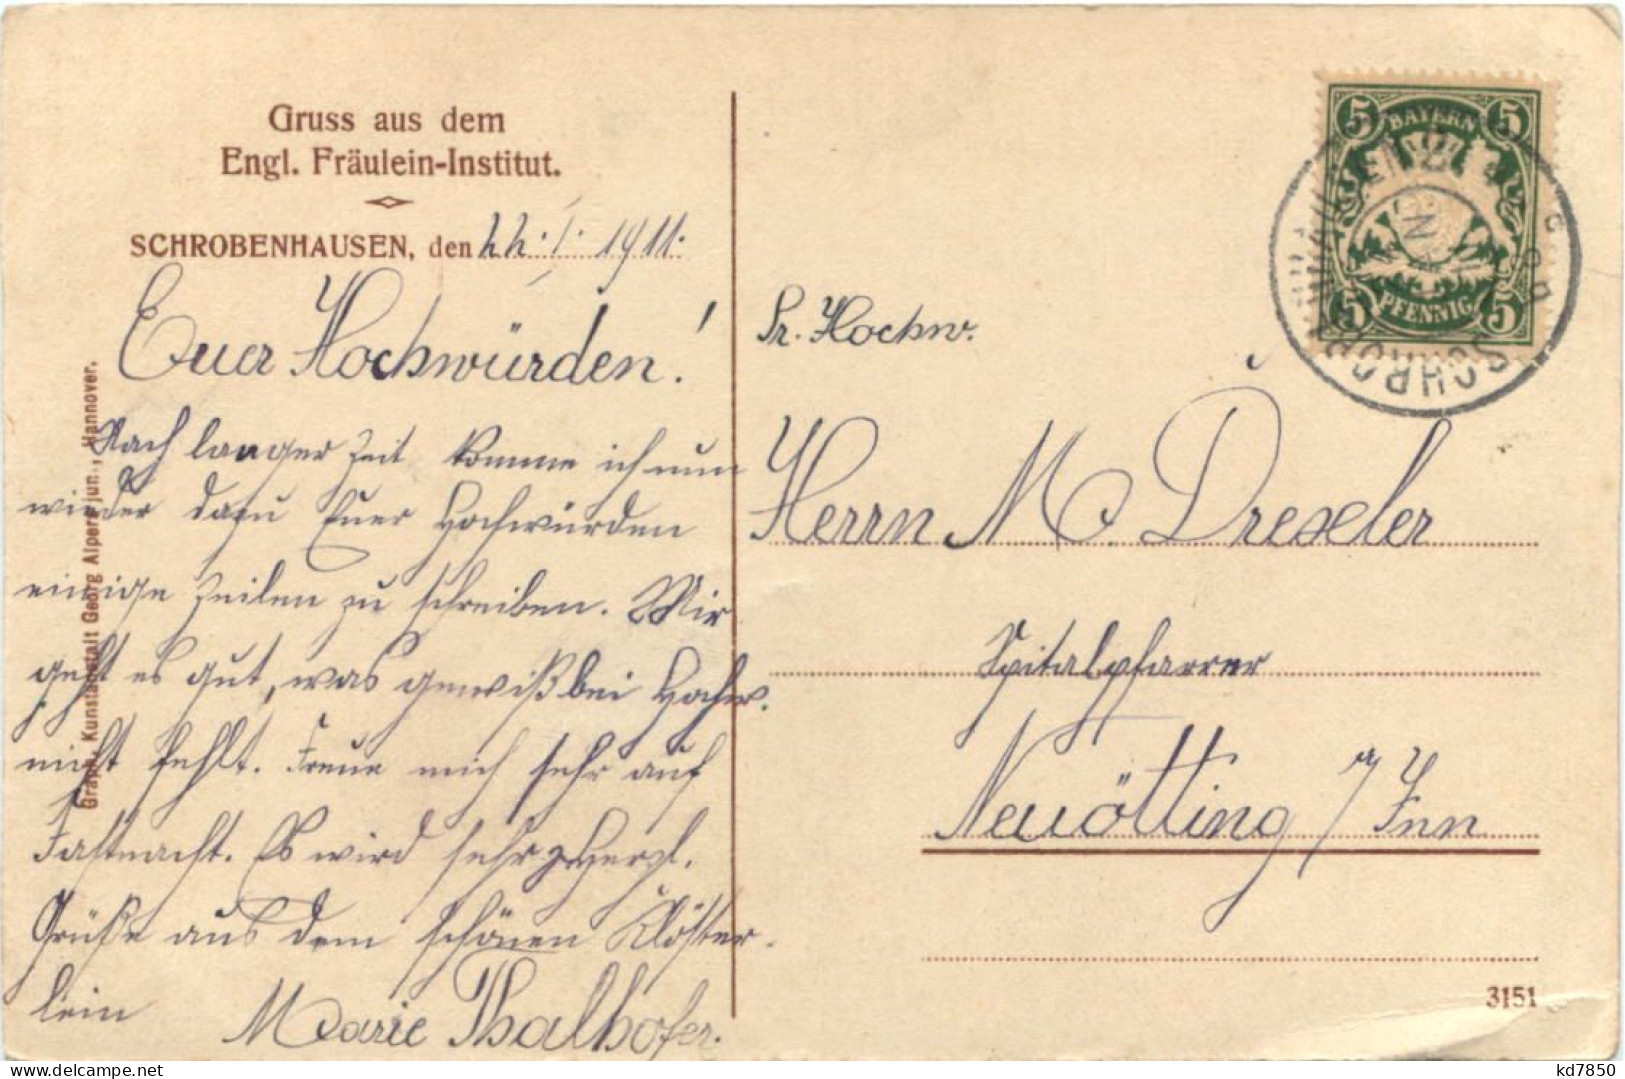 Gruss aus dem
Engl. Fräulein-Institut.
SCHROBENHAUSEN, den 22. I. 1911.
Euer Hochwürden!
Nach langer Zeit komme ich nun
wieder dazu Euer Hochwürden
einige Zeilen zu schreiben. Mir
geht es gut, was gewiß bei Hochw.
nicht fehlt. Freue mich sehr auf
Fastnacht. Es wird sehr Herzl.
Grüße aus dem schönen Klöster-
lein Marie Thalhofer.
Graph. Kunstanstalt Georg Alpers jun., Hannover.
5 BAYERN 5
5 PFENNIG 5
SCHROB
Sr. Hochw.
Herrn M. Drexler
Spitalpfarrer
Neuötting / Inn
3151
kd7850